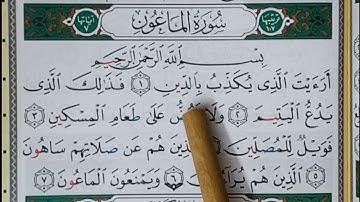 سُورَةُ المَاعُونِ
ترتيبها ١٠٧
آياتها ٧
بِسْمِ اللَّهِ الرَّحْمَٰنِ الرَّحِيمِ
أَرَءَيْتَ الَّذِي يُكَذِّبُ بِالدِّينِ ١ فَذَٰلِكَ الَّذِي
يَدُعُّ الْيَتِيمَ ٢ وَلَا عَلَىٰ طَعَامِ الْمِسْكِينِ ٣
فَوَيْلٌ لِلْمُصَلِّينَ هُمْ عَنْ صَلَاتِهِمْ سَاهُونَ
٥ الَّذِينَ هُمْ ٦ وَيَمْنَعُونَ الْمَاعُونَ